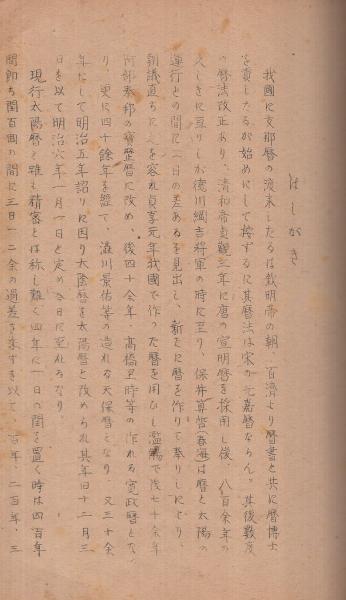 はしがき
我國に支那曆の渡来したるは欽明帝の朝、百済より曆書と共に曆博士
を貢したるが始めにして按ずるに其曆法は宋の元嘉曆ならん。其後数度
の曆法改正あり、清和帝貞觀三年に唐の宣明曆を採用し後、八百余年の
久しきに亘りしが徳川綱吉将軍の時に至り、保井算哲(春海)は曆と太陽の
運行との間に二日の差あるを見出し、新たに曆を作りて奉りしにより、
朝議直ちに之を容れ貞享元年我國で作った曆を用ひし濫觴で後七十余年
阿部泰邦の寶歷曆に改め、後四十余年、高橋至時等の作れる寛政曆となり
り、更に四十餘年を経て、澁川景佑等の造れる天保曆となり、又三十余
年にして明治五年詔りに因り太陰曆を太陽曆と改められ其年旧十二月三
日を以て明治六年一月一日と定め今日に至れるなり。
現行太陽曆と雖も精密とは称し難く四年に一日の閏を置く時は四百年
間即ち閏百回の間に三日一二余の過差を来すを以て、百年、二百年、三